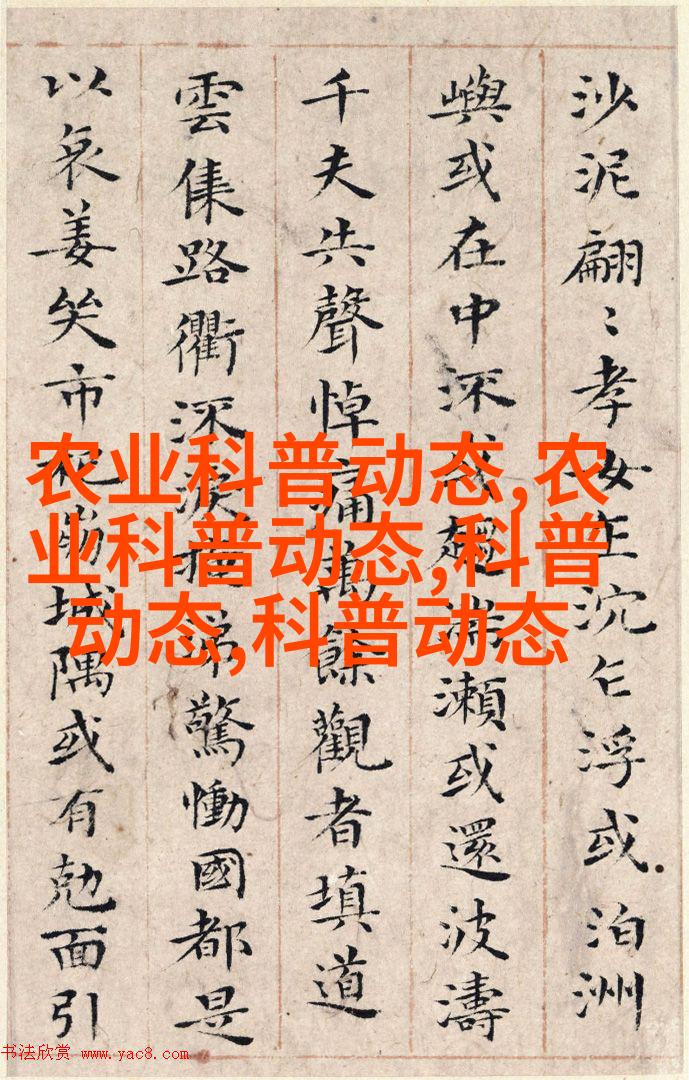 沙泥翩〻孝女乍沉乍浮或泊洲
嶼或在中流或趨湍瀨或還波濤
千夫共聲悼痛萬餘觀者填道
雲集路衢流淚掩涕驚慟國都是
以哀姜哭市杞崩城隅或有勊面引
农业科普动态,农
业科普动态,科普
动态,科普动态
书法欣赏 www.yac8.com